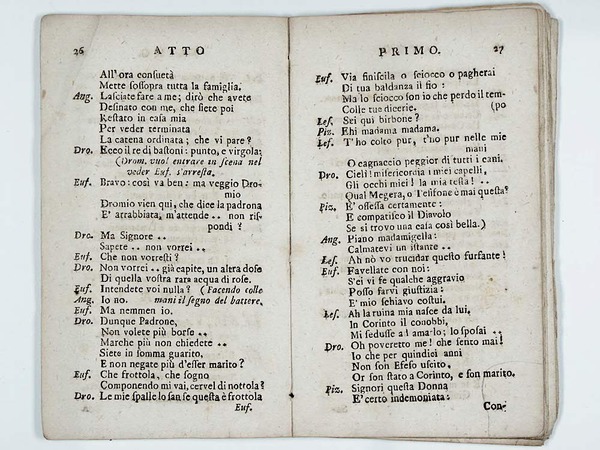 26 ATTO
All' ora consuetà
Mette sossopra tutta la famiglia.
Ang. Lasciate fare a me; dirò che avete
Desinato con me, che siete poi
Restato in casa mia
Per veder terminata
La catena ordinata; che vi pare?
Dro. Ecco il re di bastoni: punto, e virgola;
(Drom. vuol entrare in scena nel
veder Euf. s'arresta.
Euf. Bravo: così va ben: ma veggio Dro-
mio
Dromio vien qui, che dice la padrona
E' arrabbiata, m'attende .. non ris-
pondi?
Dro. Ma Signore ..
Sapete .. non vorrei ..
Euf. Che non vorresti?
Dro. Non vorrei .. già capite, un altra dose
Di quella vostra rara acqua di rose.
Euf. Intendete voi nulla? (facendo colle
Ang. Io no. mani il segno del battere.
Euf. Ma nemmen io.
Dro. Dunque Padrone,
Non volete più borse ..
Marche più non chiedete ..
Siete in somma guarito,
E non negate più d'esser marito?
Euf. Che frottola, che sogno
Componendo mi vai, cervel di nottola?
Dro. Le mie spalle lo san se questa è frottola
Euf.
PRIMO. 27
Euf. Via finiscila o sciocco o pagherai
Di tua baldanza il fio:
Ma lo sciocco son io che perdo il tem-
Colle tue dicerie. (po
Les. Sei qui birbone?
Piz. Ehi madama madama.
Les. T'ho colto pur, t'ho pur nelle mie
mani
O cagnaccio peggior di tutti i cani.
Dro. Cieli! misericordia i miei capelli,
Gli occhi miei! la mia testa! ..
Qual Megera, o Tesifone è mai questa?
Piz. E' ossessa certamente:
E compatisco il Diavolo
Se si trovo una casa così bella.)
Ang. Piano madamigella:
Calmatevi un istante ..
Les. Ah nò vo trucidar questo furfante!
Euf. Favellate con noi:
S'ei vi fe qualche aggravio
Posso farvi giustizia:
E' mio schiavo costui.
Les. Ah la ruina mia nasce da lui,
In Corinto il conobbi,
Mi sedusse al amarlo; lo sposai ..
Dro. Oh poveretto me! che sento mai!
Io che per quindici anni
Non son Efeso uscito,
Or son stato a Corinto, e son marito.
Piz. Signori questa Donna
E' certo indemoniata:
Con-